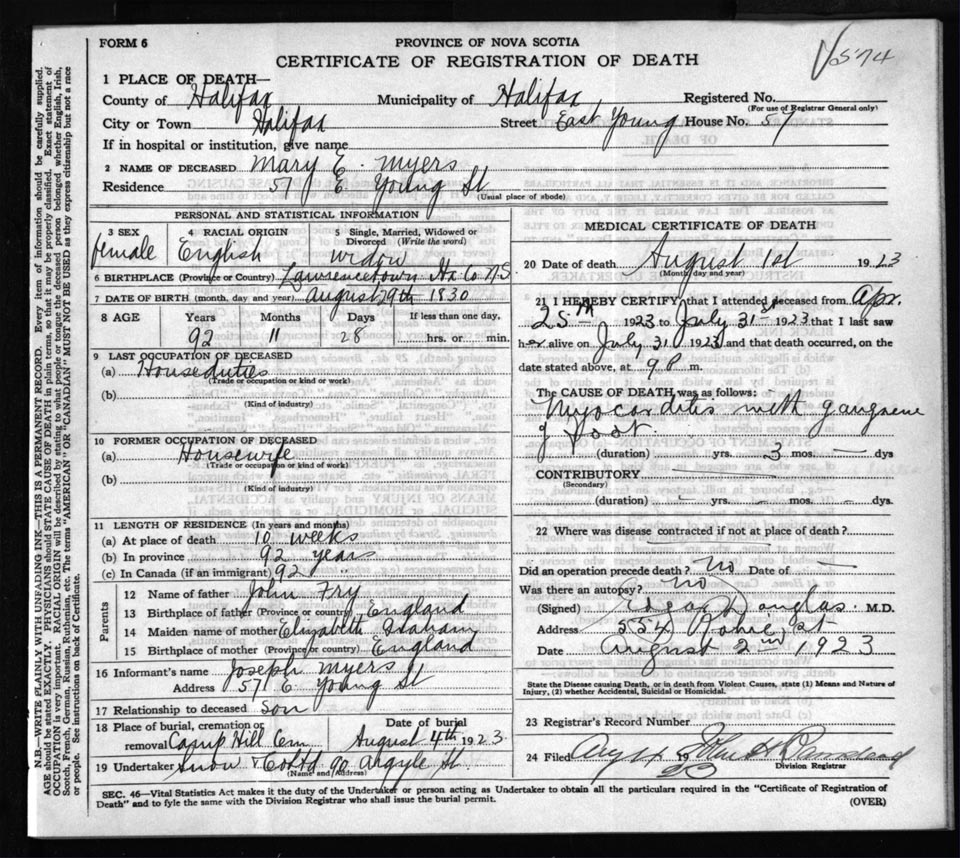 FORM 6
PROVINCE OF NOVA SCOTIA
CERTIFICATE OF REGISTRATION OF DEATH
574
1 PLACE OF DEATH—
County of Halifax Municipality of Halifax Registered No.
(For use of Registrar General only)
City or Town Halifax Street East Young House No. 57
If in hospital or institution, give name
2 NAME OF DECEASED Mary E. Myers
Residence 57 E. Young St
(Usual place of abode)
PERSONAL AND STATISTICAL INFORMATION
3 SEX 4 RACIAL ORIGIN 5 Single, Married, Widowed or Divorced (Write the word)
female English widow
6 BIRTHPLACE (Province or Country) Lawrencetown Hx Co N.S
7 DATE OF BIRTH (month, day and year) August 29th 1830
8 AGE Years Months Days If less than one day,
92 11 28 hrs. or min.
9 LAST OCCUPATION OF DECEASED
(a) Houseduties
(Trade or occupation or kind or work)
(b)
(Kind of industry)
10 FORMER OCCUPATION OF DECEASED
(a) Housewife
(Trade or occupation or kind or work)
(b)
(Kind of industry)
11 LENGTH OF RESIDENCE (In years and months)
(a) At place of death 10 weeks
(b) In province 92 years
(c) In Canada (if an immigrant) 92
Parents
12 Name of father John Fry
13 Birthplace of father (Province or country) England
14 Maiden name of mother Elizabeth
15 Birthplace of mother (Province or country) England
16 Informant's name Joseph Myers
Address 57 E Young St
17 Relationship to deceased son
18 Place of burial, cremation or Date of burial
removal Camp Hill Cem August 4th 1923.
19 Undertaker Snow & Co Ltd 90 Argyle St.
(Name and Address)
MEDICAL CERTIFICATE OF DEATH
20 Date of death August 1st 1923
(Month day and year)
21 I HEREBY CERTIFY that I attended deceased from Apr.
25th 1923 to July 31st 1923 that I last saw
her alive on July 31 1923 and that death occurred, on the
date stated above, at 9 P m.
The CAUSE OF DEATH was as follows:
Myocarditis with gangrene
of foot.
(duration) yrs. 3 mos. — dys
CONTRIBUTORY —
(Secondary)
(duration) — yrs. — mos. — dys.
22 Where was disease contracted if not at place of death?
Did an operation precede death? no Date of —
Was there an autopsy? no
(Signed) Douglas M.D.
Address 554 St
Date August 2nd 1923
State the Disease causing Death, or in death from Violent Causes, state (1) Means and Nature of
Injury, (2) whether Accidental, Suicidal or Homicidal.
23 Registrar's Record Number
24 Filed Aug 4 1923 John H
Division Registrar
SEC. 46—Vital Statistics Act makes it the duty of the Undertaker or person acting as Undertaker to obtain all the particulars required in the "Certificate of Registration of
Death" and to fyle the same with the Division Registrar who shall issue the burial permit.
(OVER)
N.B.—WRITE PLAINLY WITH UNFADING INK—THIS IS A PERMANENT RECORD. Every item of information should be carefully supplied.
AGE should be stated EXACTLY. PHYSICIANS should STATE CAUSE OF DEATH in plain terms, so that it may be properly classified. Exact statement of
OCCUPATION is very important. RACIAL ORIGIN will be described by stating to what people or tongue the deceased person belonged whether English, Irish,
Scotch, French, German, Russian, Ruthenian, etc. The terms "AMERICAN" OR "CANADIAN" MUST NOT BE USED as they express citizenship but not a race
or people. See instructions on back of Certificate.